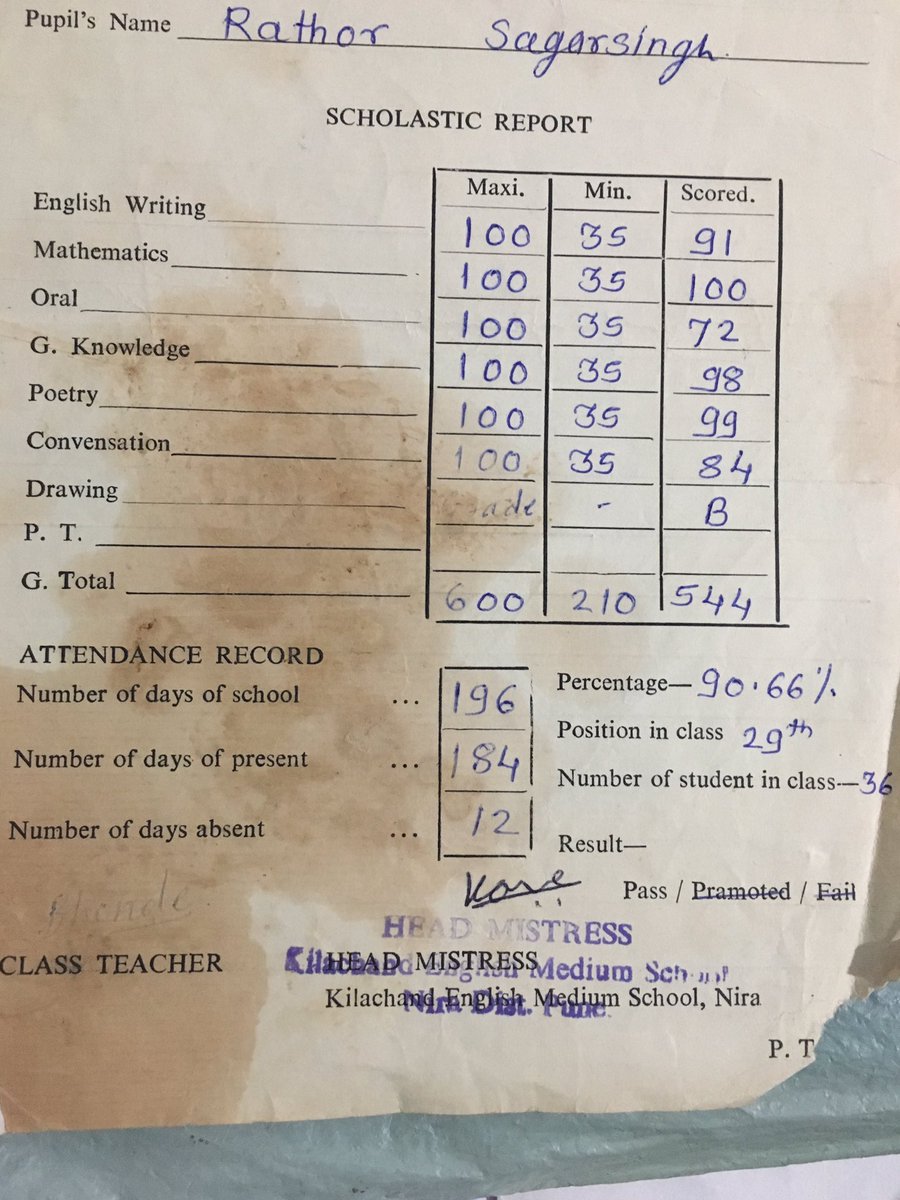 Pupil's Name Rathor Sagarsingh.
SCHOLASTIC REPORT
Maxi. Min. Scored.
English Writing 100 35 91
Mathematics 100 35 100
Oral 100 35 72
G. Knowledge 100 35 98
Poetry 100 35 99
Convensation 100 35 84
Drawing - B
P. T.
G. Total 600 210 544
ATTENDANCE RECORD
Number of days of school ... 196 Percentage— 90.66%
Position in class 29th
Number of days of present ... 184
Number of student in class—36
Number of days absent ... 12
Result—
Pass / Pramoted / Fail
HEAD MISTRESS
CLASS TEACHER HEAD MISTRESS
Kilachand English Medium School
Kilachand English Medium School, Nira
Nira Dist. Pune.
P. T